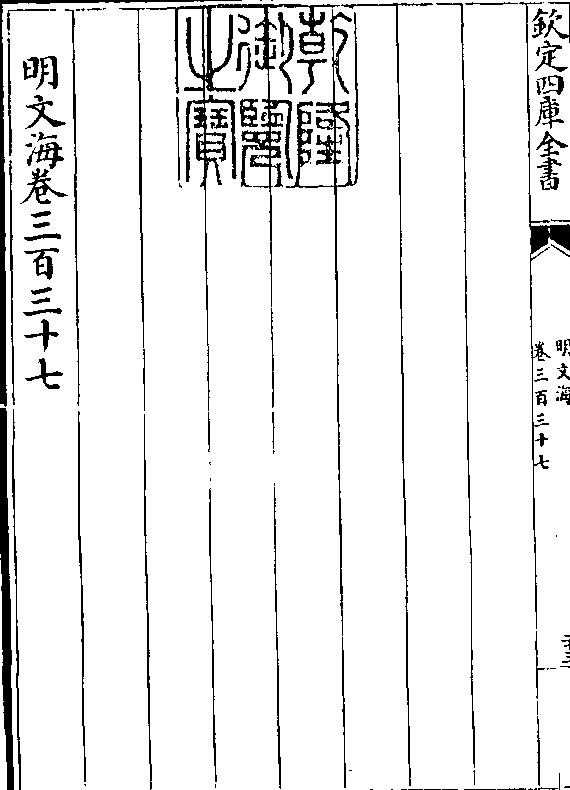 欽定四庫全書
明文海
卷三百三十七
乾隆御覽之寶
明文海卷三百三十七